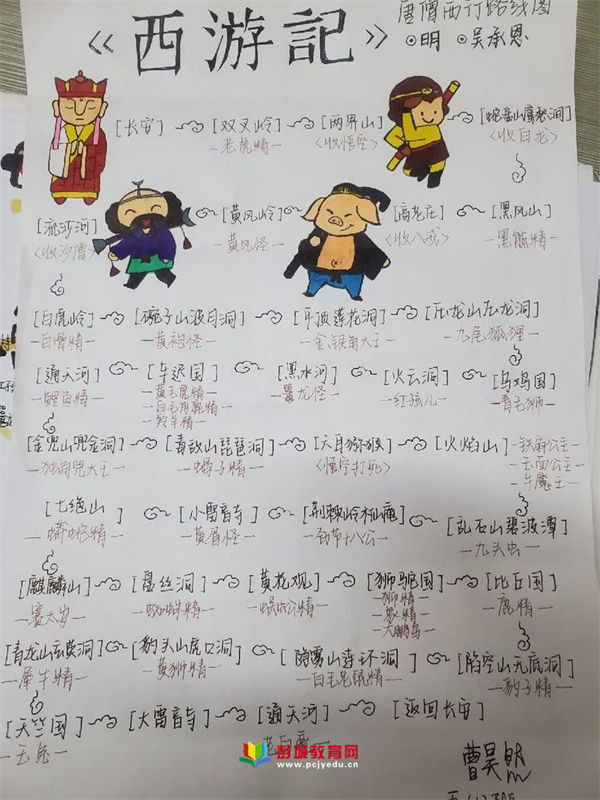 《西游記》
唐僧西行路线图
⊙明 ⊙吴承恩
[长安] [双叉岭] [两界山] [蛇盘山鹰愁涧]
—老虎精— <收悟空> <收白龙>
[流沙河] [黄风岭] [高老庄] [黑风山]
<收沙僧> —黄风怪— <收八戒> —黑熊精—
[白虎岭] [碗子山波月洞] [平顶莲花洞] [压龙山压龙洞]
—白骨精— —黄袍怪— —金银角大王— —九尾狐狸—
[通天河] [车迟国] [黑水河] [火云洞] [乌鸡国]
—鲤鱼精— —黄毛虎精— —鼍龙怪— —红孩儿— —青毛狮—
—白毛角鹿精—
—羚羊精—
[金兜山兜金洞] [毒敌山琵琶洞] [六耳猕猴] [火焰山] —铁扇公主—
—独角兕大王— —蝎子精— <悟空打死> —玉面公主—
—牛魔王—
[七绝山] [小雷音寺] [荆棘岭木仙庵] [乱石山碧波潭]
—蟒蛇精— —黄眉怪— —劲节十八公— —九头虫—
[麒麟山] [盘丝洞] [黄花观] [狮驼国] [比丘国]
—赛太岁— —蜘蛛精— —蜈蚣精— —狮精— —鹿精—
—象精—
—大鹏鸟—
[青龙山玄英洞] [豹头山虎口洞] [隐雾山连环洞] [陷空山无底洞]
—犀牛精— —黄狮精— —白毛老鼠精— —豹子精—
[天竺国] [大雷音寺] [通天河] [返回长安]
—玉兔—
曹昊
彭城教育网
www.pcjyedu.cn